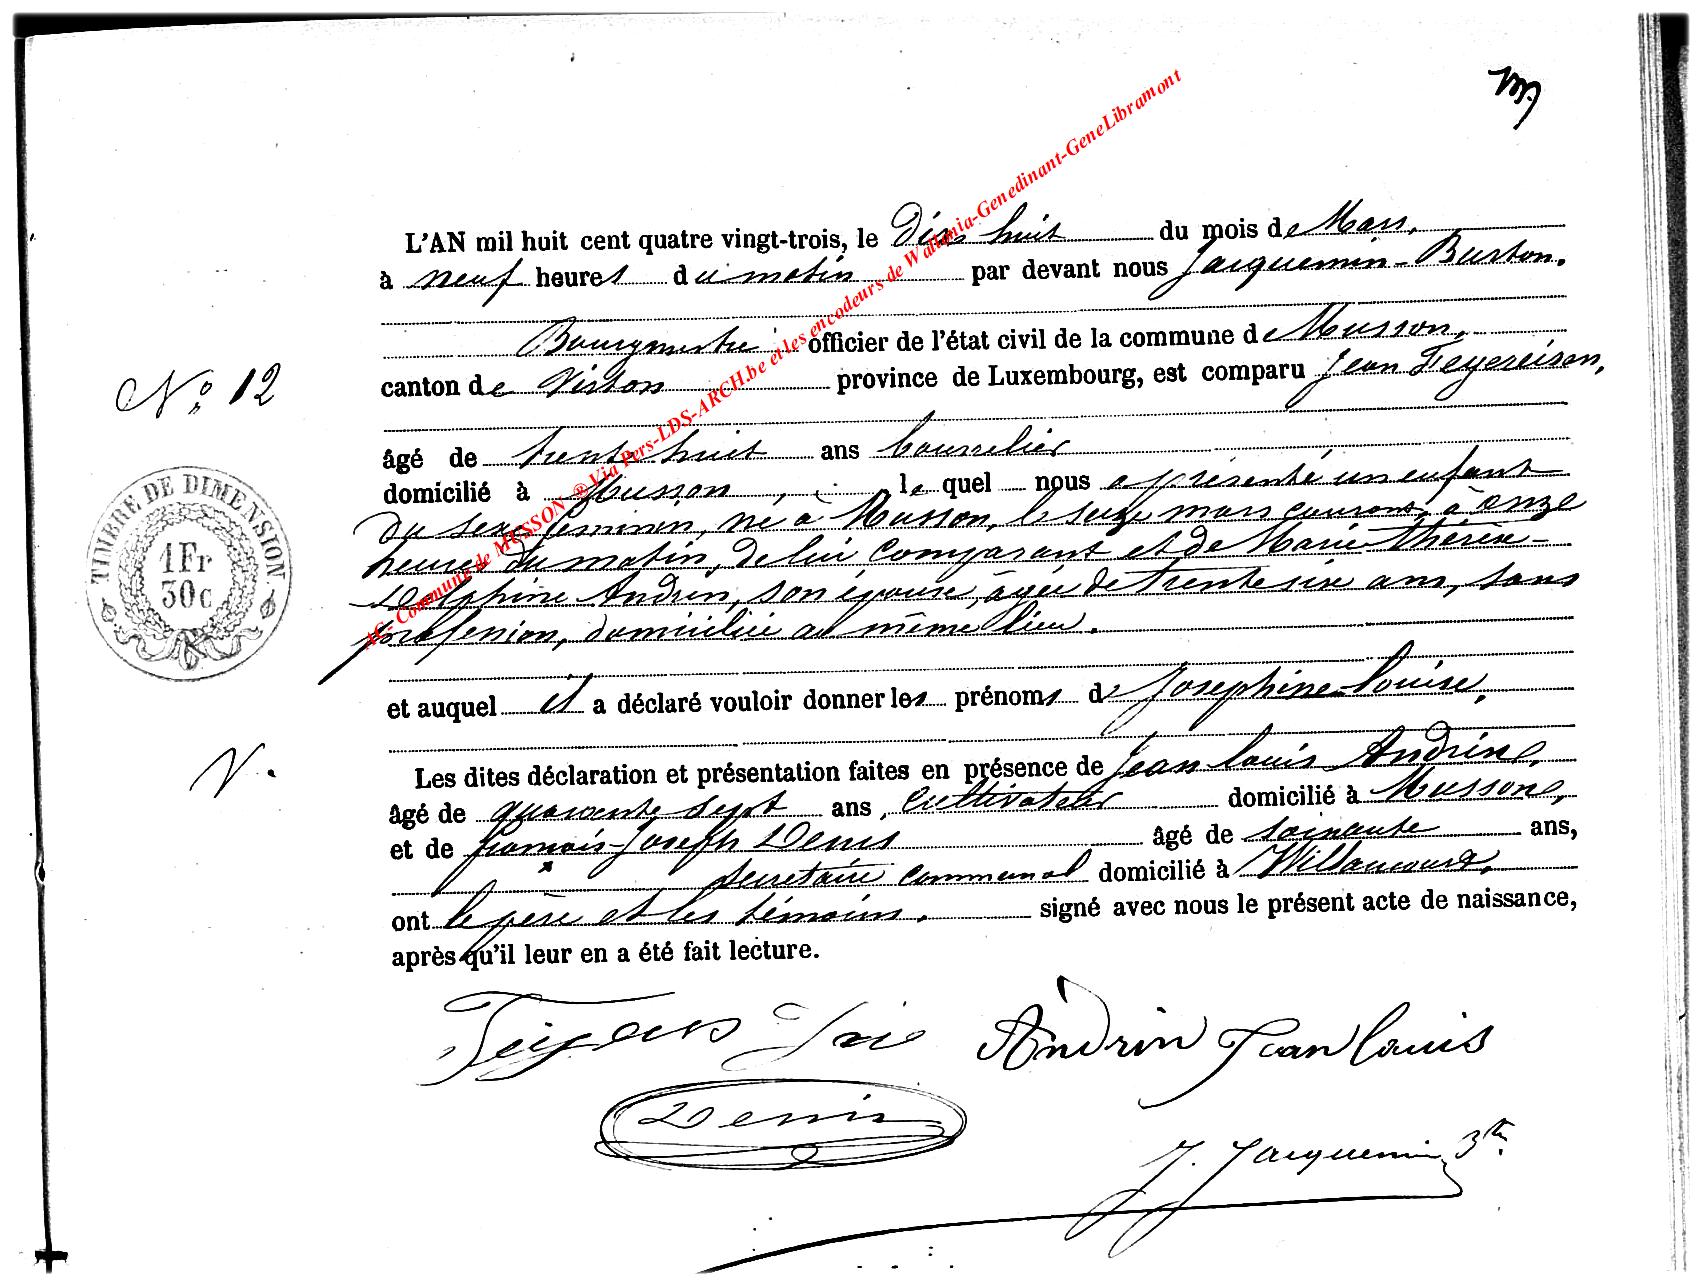 L'AN mil huit cent quatre vingt-trois, le Dix huit du mois de Mars,
à neuf heures du matin par devant nous Jacquemin-Burton.
Bourgmestre officier de l'état civil de la commune de Musson,
N° 12
canton de Virton province de Luxembourg, est comparu Jean Feyereisen,
âgé de trente huit ans bourrelier
domicilié à Musson, lequel nous a présenté un enfant
du sexe féminin, né à Musson, le seize mars courant, à onze
heures du matin, de lui comparant et de Marie-Thérèse-
Delphine Andrin, son épouse, âgée de trente six ans, sans
profession, domiciliée au même lieu.
TIMBRE DE DIMENSION
1 Fr
30 c
et auquel il a déclaré vouloir donner les prénoms de Josephine-Louise,
V.
Les dites déclaration et présentation faites en présence de Jean Louis Andrin,
âgé de quarante sept ans, cultivateur domicilié à Musson,
et de françois-Joseph Denis âgé de soixante ans,
secrétaire communal domicilié à Willancourt,
ont le père et les témoins. signé avec nous le présent acte de naissance,
après qu'il leur en a été fait lecture.
Andrin Jean louis
Denis
J. Jacquemin Bton
AG- Commune de MUSSON ® Via Pers-LDS-ARCH.be et les encodeurs de Wallonia-Genedinant-GeneLibramont